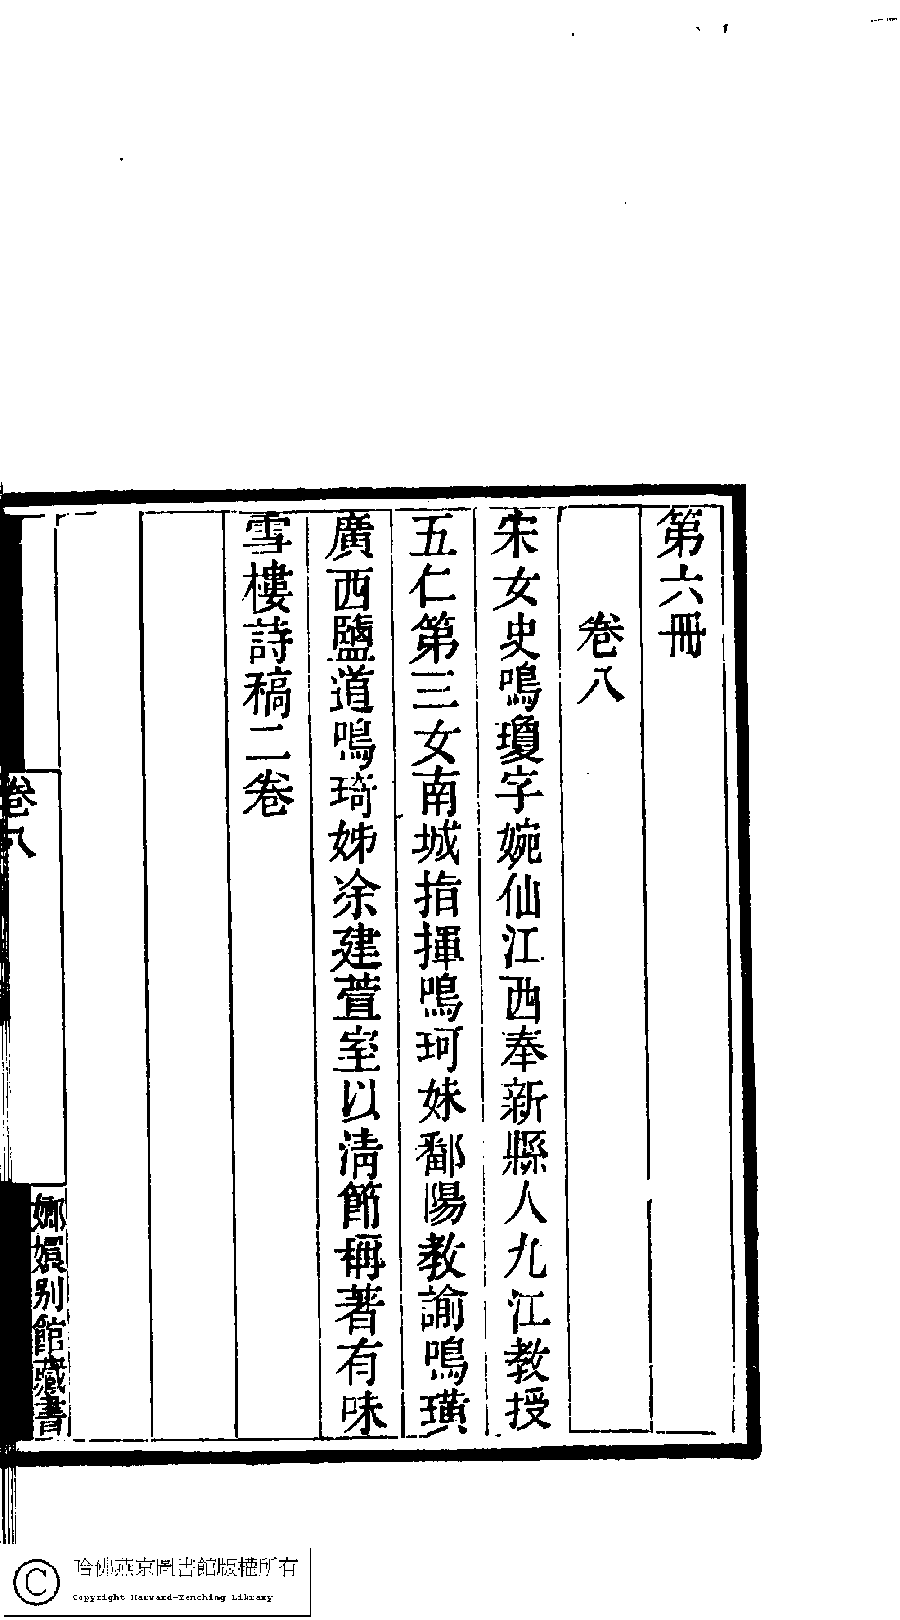 第六冊
卷八
宋女史鳴瓊字婉仙江西奉新縣人九江教授
五仁第三女南城指揮鳴珂妹鄱陽教諭鳴璜
廣西鹽道鳴琦姊凃建萱室以清節稱著有味
雪樓詩稿二卷
卷八
嫏嬛別館藏書
哈佛燕京圖書館版權所有
Copyright Harvard-Yenching Library